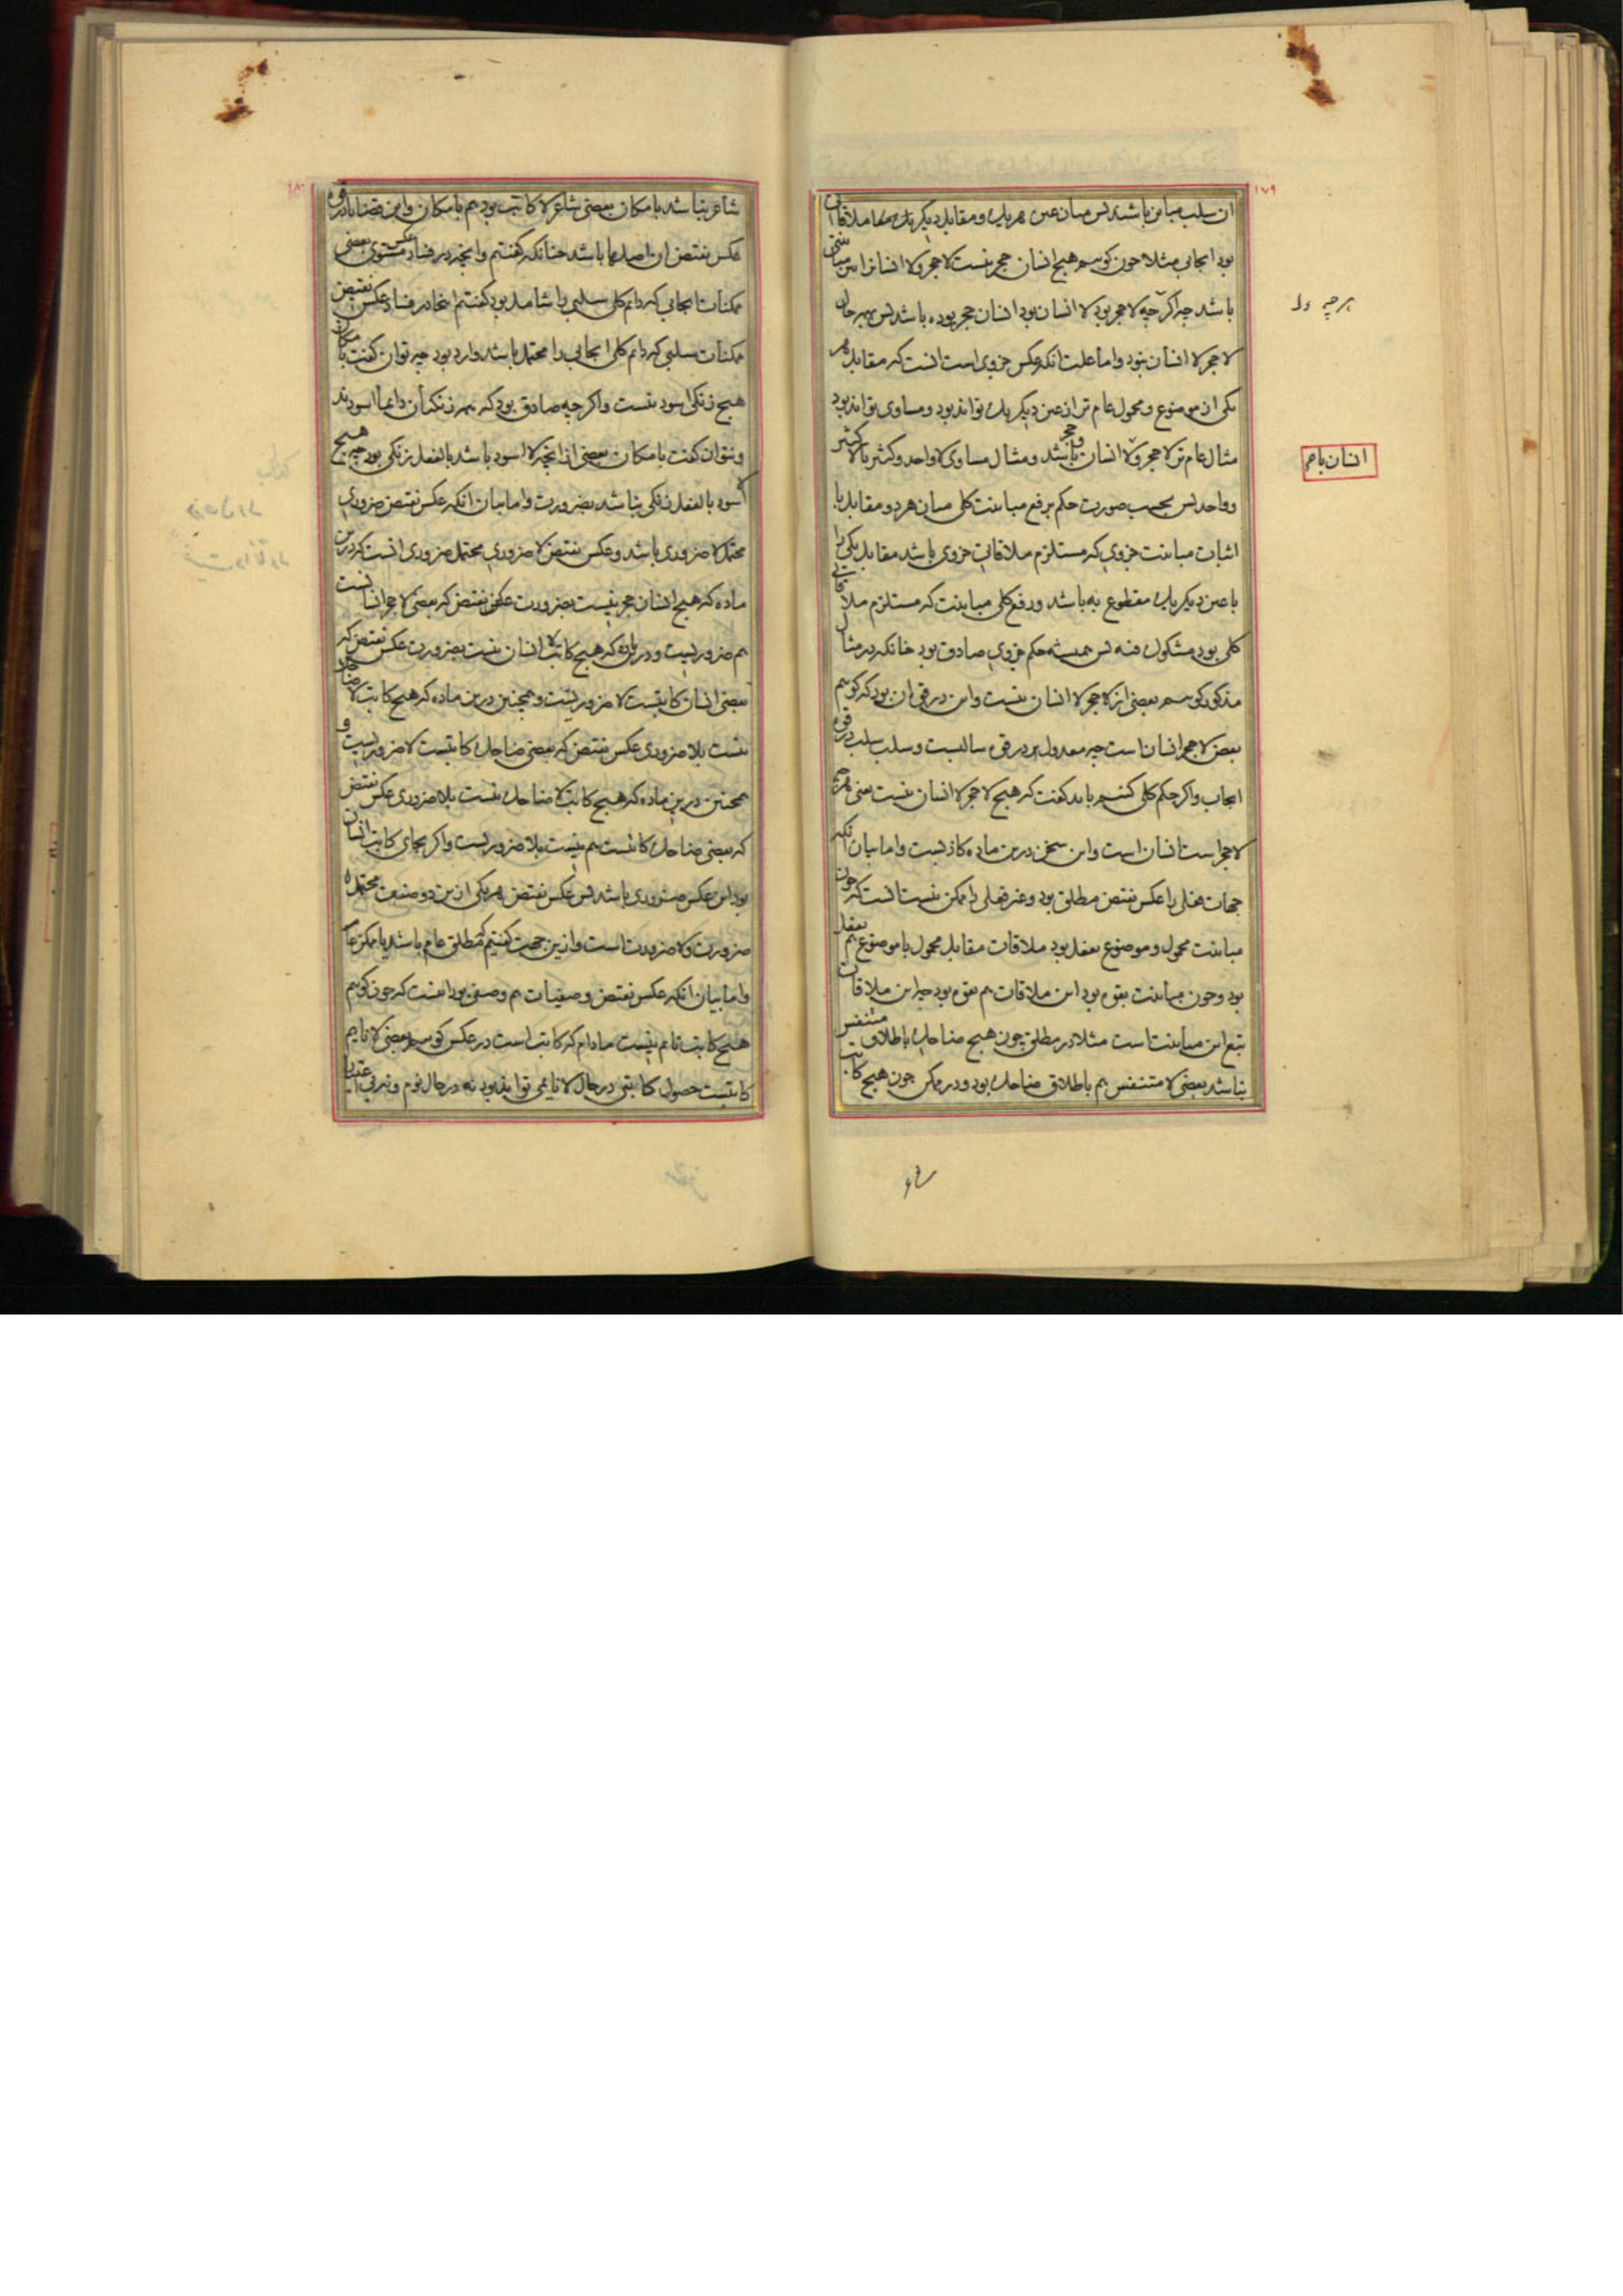 ۱۷۹
ان سلب مباین باشد پس میان عین هر یک و مقابل دیگر یک ملاقاتی
بود ایجابی مثلا چون کوییم هیچ انسان حجر نیست لا حجر و لا انسان را این مباینتی
باشد چه اکر هرچه لا حجر بود لا انسان بود انسان حجر بوده باشد پس بهر حال
لا حجر لا انسان نبود و اما علت انکه عکس جزوی است انست که مقابل هر
یکی از موضوع و محمول عام تر از عین دیگر یک تواند بود و مساوی تواند بود
مثال عام تر لا حجر و لا انسان با حجر باشد و مثال مساوی لا واحد و کثیر با لا کثیر
و واحد پس بحسب صورت حکم برفع مباینت کلی میان هر دو مقابل با
اثبات مباینت جزوی که مستلزم ملاقاتی جزوی باشد مقابل یکی را
با عین دیگر یک مقطوع به باشد و رفع کلی مباینت که مستلزم ملاقاتی
کلی بود مشکوک فیه پس همیشه حکم جزوی صادق بود چنانکه در مثال
مذکور کوییم بعضی از لا حجر لا انسان نیست و این در قوه ان بود که کوییم
بعض لا حجر انسان است چه معدول در قوه سالبست و سلب سلب در قوه
ایجاب و اکر حکم کلی کنیم باید کفت که هیچ لا حجر لا انسان نیست یعنی هر چه
لا حجر است انسان است و این سخن درین ماده کاذبست و اما بیان انکه
جهات فعلی را عکس نقیض مطلق بود و غیر فعلی را ممکن نیست انست که چون
مباینت محمول و موضوع بفعل بود ملاقات مقابل محمول با موضوع هم بفعل
بود و چون مباینت بقوه بود این ملاقات هم بقوه بود چه این ملاقات
تبع این مباینت است مثلا در مطلق چون هیچ ضاحک باطلاق متنفس
نباشد بعضی لا متنفس هم باطلاق ضاحک بود و در ممکن چون هیچ کاتب
هر چه
انسان با حجر
۱۸۰
شاعر نباشد بامکان بعضی شاعر لا کاتب بود هم بامکان و این قضایا در قوه
عکس نقیض ان اصلها باشد چنانکه کفتیم و انچه در فساد عکس مستوی بعضی
ممکنات ایجابی که دایم کلی سلبی را شامل بود کفتیم اینجا در فساد عکس نقیض
ممکنات سلبی که دایم کلی ایجابی را محتمل باشد وارد بود چه توان کفت بامکان
هیچ زنکی اسود نیست و اکر چه صادق بود که همه زنکیان دایما اسودند
و نتوان کفت بامکان بعضی از انچه لا اسود باشد بالفعل زنکی بود چه هیچ
لا اسود بالفعل زنکی نباشد بضرورت و اما بیان انکه عکس نقیض ضروری
محتمل لا ضروری باشد و عکس نقیض لا ضروری محتمل ضروری انست که درین
ماده که هیچ انسان حجر نیست بضرورت عکس نقیض که بعضی لا حجر انسانست
هم ضروریست و درین ماده که هیچ کاتب لا انسان نیست بضرورت عکس نقیض که
بعضی انسان کاتبست لا ضروریست و همچنین درین ماده که هیچ کاتب لا ضاحک
نیست بلا ضروری عکس نقیض که بعضی ضاحک کاتبست لا ضروریست و
همچنین درین ماده که هیچ کاتب لا ضاحک نیست بلا ضروری عکس نقیض
که بعضی ضاحک کاتبست هم نیست بلا ضروریست و اکر بجای کاتب انسان
بود این عکس ضروری باشد پس عکس نقیض هر یکی ازین دو صنف محتمل
ضرورت و لا ضرورت است و ازین جهت کفتیم که مطلق عام باشد یا ممکن عام
و اما بیان انکه عکس نقیض وصفیات هم وصفی بود انست که چون کوییم
هیچ کاتب نایم نیست مادام که کاتب است در عکس کوییم بعضی لا نایم
کاتبست حصول کاتبی در حال لا نایمی تواند بود نه در حال نوم و نیز فی